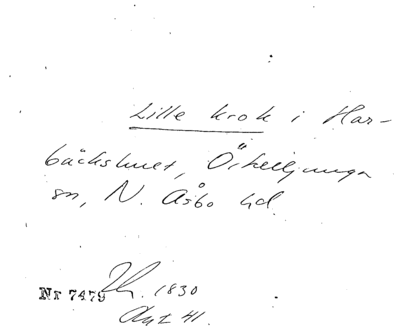 Lille krok i Har-
bäckshult, Örkelljunga
sn, N. Åsbo hd.
Nr 7479 . 1830
41.